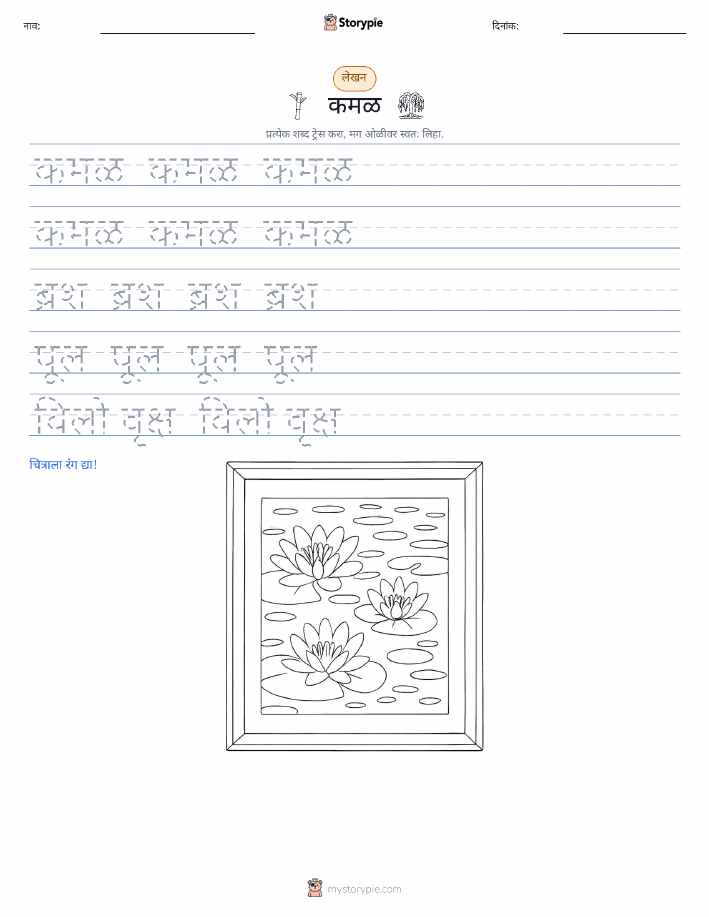 नाव:
Storypie
दिनांक:
लेखन
कमळ
प्रत्येक शब्द ट्रेस करा, मग ओळीवर स्वतः लिहा.
कमळ कमळ कमळ
कमळ कमळ कमळ
ब्रश ब्रश ब्रश ब्रश
पूल पूल पूल पूल
विलो वृक्ष विलो वृक्ष
चित्राला रंग द्या!
mystorypie.com